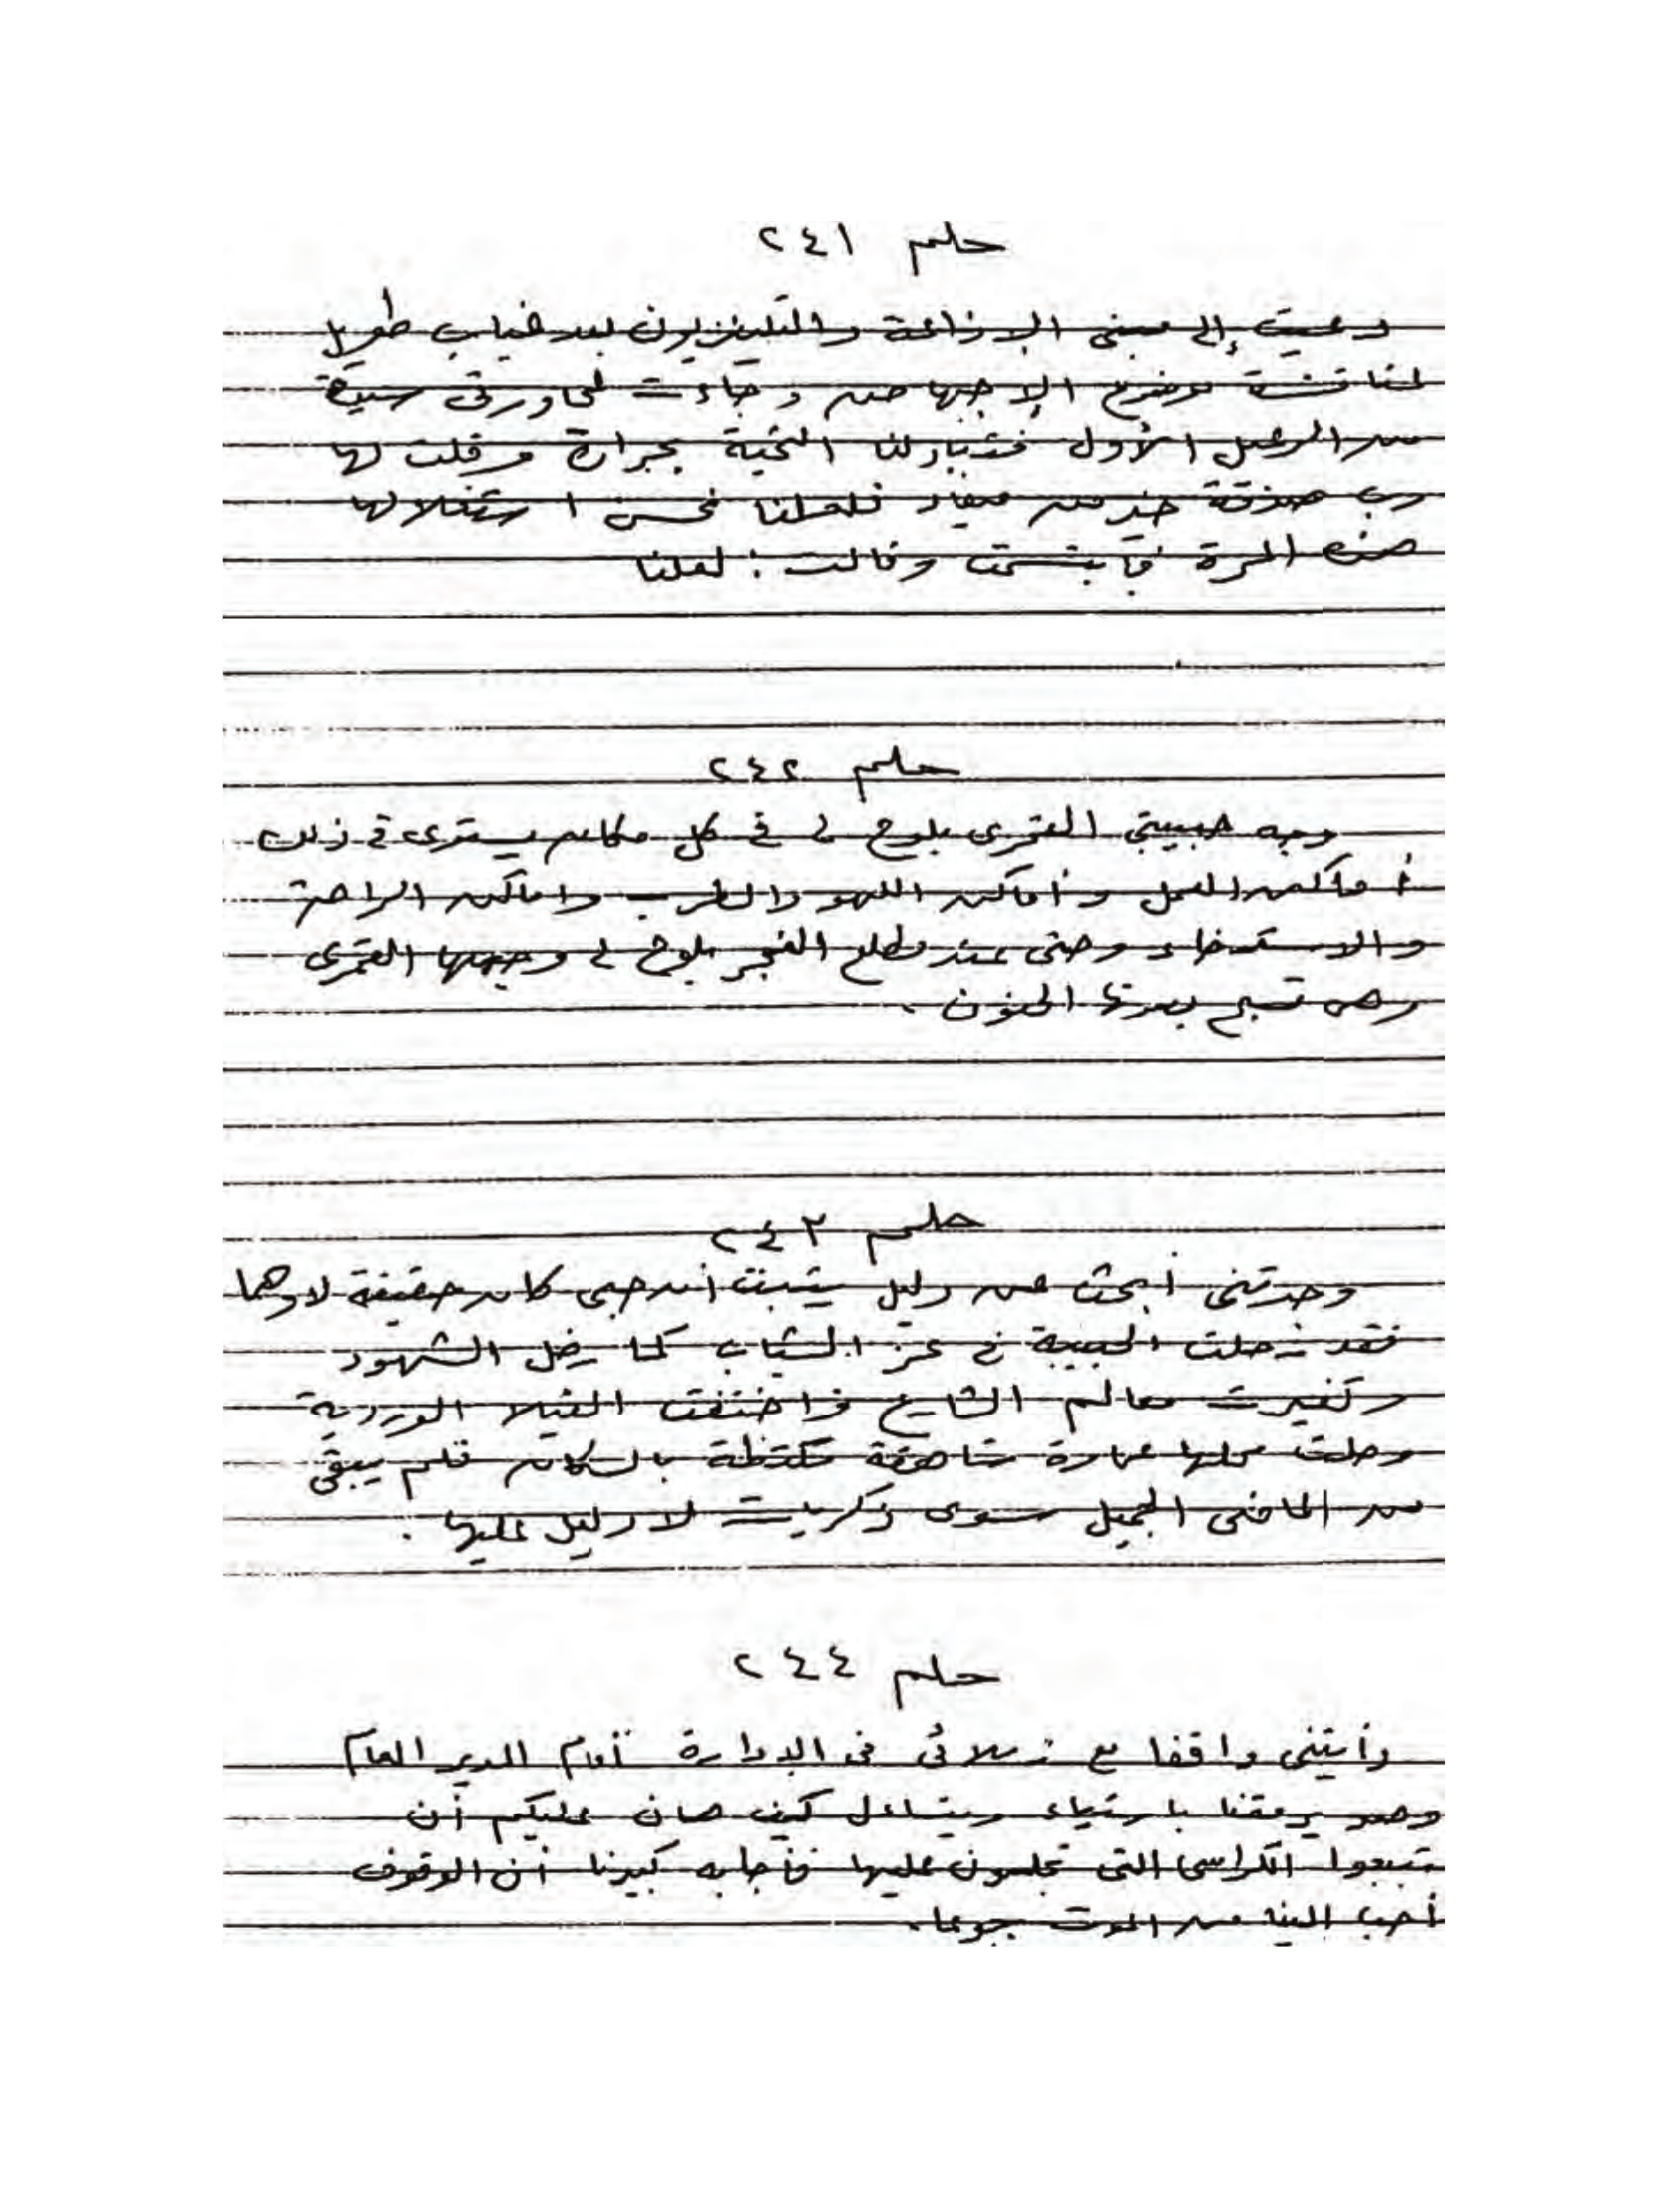 حلم ٢٤١
دعيت إلى مبنى الإذاعة والتليفزيون بعد غياب طويل
لمناقشة موضوع الإجهاض وجاءت لمحاورتى سيدة
من الرعيل الأول فتبادلنا التحية بحرارة وقلت لها
رب صدفة خير من ميعاد فلعلنا نحسن استغلالها
هذه المرة فابتسمت وقالت: لعلنا
حلم ٢٤٢
وجه حبيبتى القمرى يلوح لى فى كل مكان يستوى فى ذلك
أماكن العمل وأماكن اللهو والطرب واماكن الراحة
والاسترخاء وحتى عند مطلع الفجر يلوح لى وجهها القمرى
وهى تسبح بصوتها الحنون.
حلم ٢٤٣
وجدتنى أبحث عن دليل يثبت أن حبى كان حقيقة لا وهما
فقد رحلت الحبيبة فى عز الشباب كما رحل الشهود
وتغيرت معالم الشارع فاختفت الفيلا الوردية
وحلت محلها عمارة شاهقة مكتظة بالسكان فلم يبقى
من الماضى الجميل سوى ذكريات لا دليل عليها.
حلم ٢٤٤
رأيتنى واقفا مع زملائى فى الإدارة أمام المدير العام
وهو يرمقنا بارتياء ويتساءل كيف هان عليكم أن
تبيعوا الكراسى التى تجلسون عليها فأجابه كبيرنا أن الوقوف
أحب الينا من الموت جوعا.